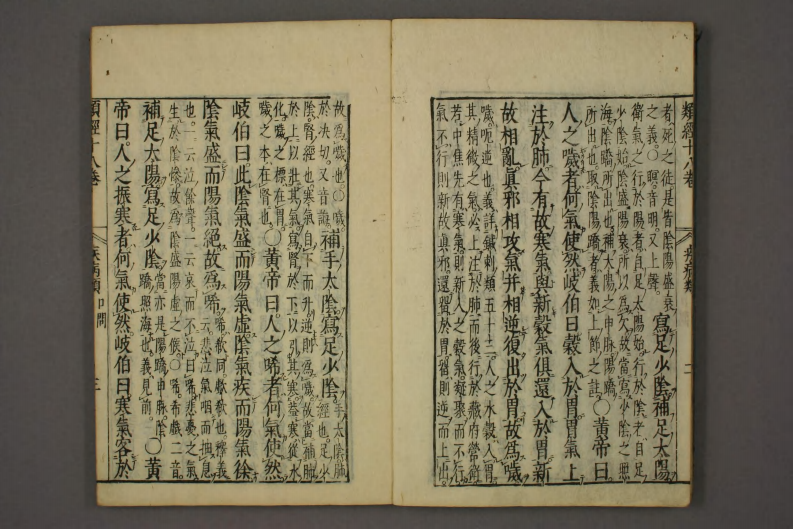 類經十八卷
疾病類
二
者死之徒是皆陰陽盛衰
之義○瞑音明又上聲
寫足少陰補足太陽
衛氣之行於陽者自足太陽始行於陰者自足
少陰始陰盛陽衰所以為欠故當寫少陰之照
海陰蹻所出也補太陽之申脉陽蹻
所出也取陰陽蹻者義如上節之註
○黃帝曰
人之噦者何氣使然岐伯曰穀入於胃胃氣上
注於肺今有故寒氣與新穀氣俱還入於胃新
故相亂真邪相攻氣并相逆復出於胃故為噦
噦呃逆也義詳鍼刺類五十三人之水穀入胃
其精微之氣必上注於肺而後行於藏府營衛
若中焦先有寒氣則新入之穀氣凝聚而不行
氣不行則新故真邪還畱於胃畱則逆而上出
故為噦也○噦
於決切又音誨
補手太陰寫足少陰
手太陰肺
經也足少
陰腎經也寒氣自下而升逆則為噦故當補肺
於上以壯其氣寫腎於下以引其寒蓋寒從水
化噦之標在胃
噦之本在腎也
○黃帝曰人之唏者何氣使然
岐伯曰此陰氣盛而陽氣虛陰氣疾而陽氣徐
陰氣盛而陽氣絕故為唏
唏欷同歔欷也釋義
云悲泣氣咽而抽息
也一云泣餘聲一云哀而不泣曰唏悲憂之氣
生於陰慘故為陰盛陽虛之候○唏希戲二音
補足太陽寫足少陰
當亦是陽蹻申脉陰
蹻照海也義見前
○黃
帝曰人之振寒者何氣使然岐伯曰寒氣客於
類經十八卷
疾病類 口問
三